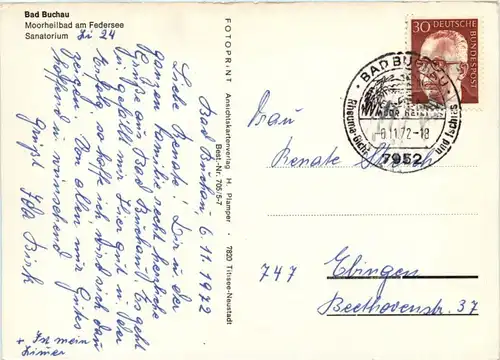 Bad Buchau
Moorheilbad am Federsee
Sanatorium Zi 24
Bad Buchau, 6.11.1972
Liebe Renate! Dir u der
ganzen Familie recht herzliche
Grüße aus Bad Buchau. Es geht
u gefällt mir hier gut u. der
Erfolg, so hoffe ich, wird sich dann
zeigen. Von allen mir Gutes
hoffend u. wünschend
Grüßt
Birk
+ Ist mein
Zimmer
FOTOPRINT Ansichtskartenverlag H. Plamper · 7820 Titisee-Neustadt
Best.-Nr. 705/5-7
30 DEUTSCHE BUNDESPOST
· BAD BUCHAU ·
MOOR HEILT
Rheuma-Gicht
und Ischias
-6.11.72-18
7952
Frau
Renate
747 Ebingen
Beethovenstr. 37